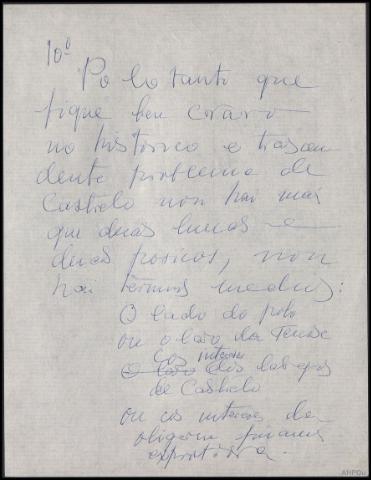 10º
Po lo tanto que
fique ben craro
no histórico e trascen
dente problema de
Castrelo non hai mais
que duas liñas e
duas posicós, non
hai términos medios:
O lado do pobo
ou o lado da Fenosa
Cos intereses
o lado dos labregos
de Castrelo
ou cos intereses da
oligarquía financieira
explotadora.
AHPOu